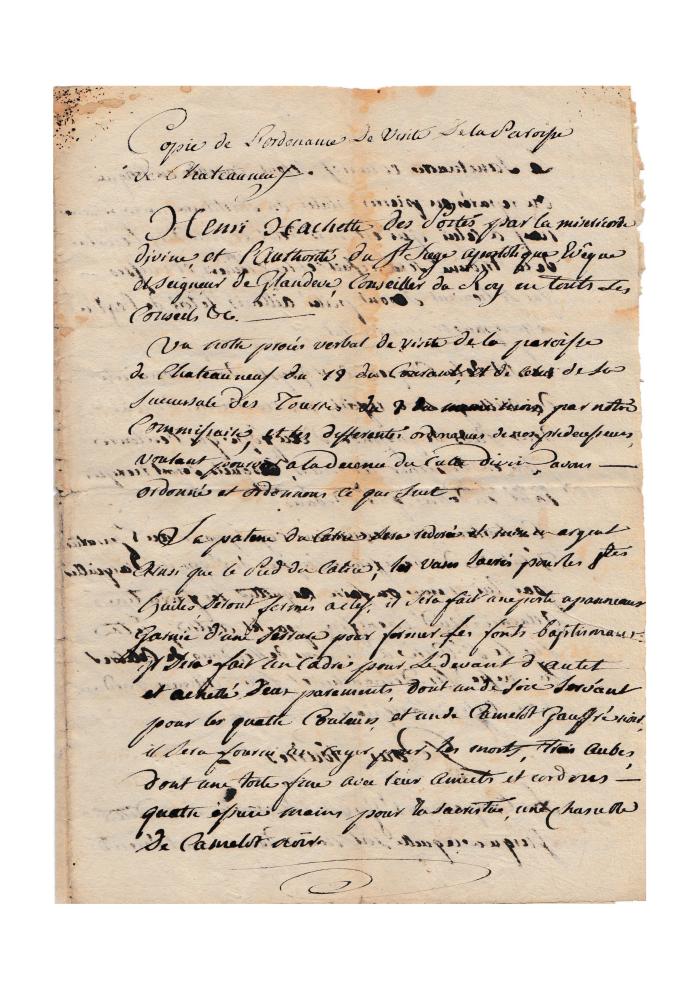 Copie de L'ordonance De Visite De la Paroisse
de Chateauneuf.
Henri Hachette des Portes par la misericorde
divine et l'Authorité du St Siege apostolique Evêque
et Seigneur de Glandeve Conseiller du Roy en touts Les
Conseils &c.
Vu notre procés verbal de visite de la paroisse
de Chateauneuf du 18 du Courant, et de celui de Sa
Succursale des Tourres du par notre
Commissaire, et les differentes ordonances de nos predecesseurs,
voulant pourvoir a la decence du Culte divin avons
ordonné et ordonnons ce que suit
La patene du Calice sera redorée et mise en argent
Ainsi que le Pied du Calice, les vases Sacrés pour les Stes
huiles seront fermés a clef, il sera fait une porte a panneaux
Garnie d'une serrure pour fermer Les fonts baptismaux
il Sera fait un Cadre pour Le devant d'autel
et acheté deux parements, dont un de soie servant
pour les quatre Couleurs, et un de Camelot Gauffré noir,
il sera fourni pour les morts, trois aubes,
dont une toile fine avec leur amicts et cordons
quatre essuie mains pour la sacristie, une chasuble
De Camelot noire